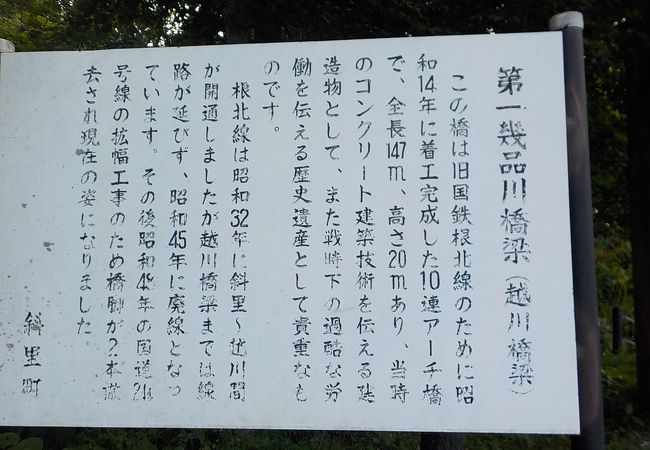 第一幾品川橋梁(越川橋梁)
この橋は旧国鉄根北線のために昭
和14年に着工完成した10連アーチ橋
で、全長147m、高さ20mあり、当時
のコンクリート建築技術を伝える建
造物として、また戦時下の過酷な労
働を伝える歴史遺産として貴重なも
のです。
根北線は昭和32年に斜里~越川間
が開通しましたが越川橋梁までは線
路が延びず、昭和45年に廃線となっ
ています。その後昭和48年の国道
号線の拡幅工事のため橋脚が2本撤
去され現在の姿になりました。
斜里町